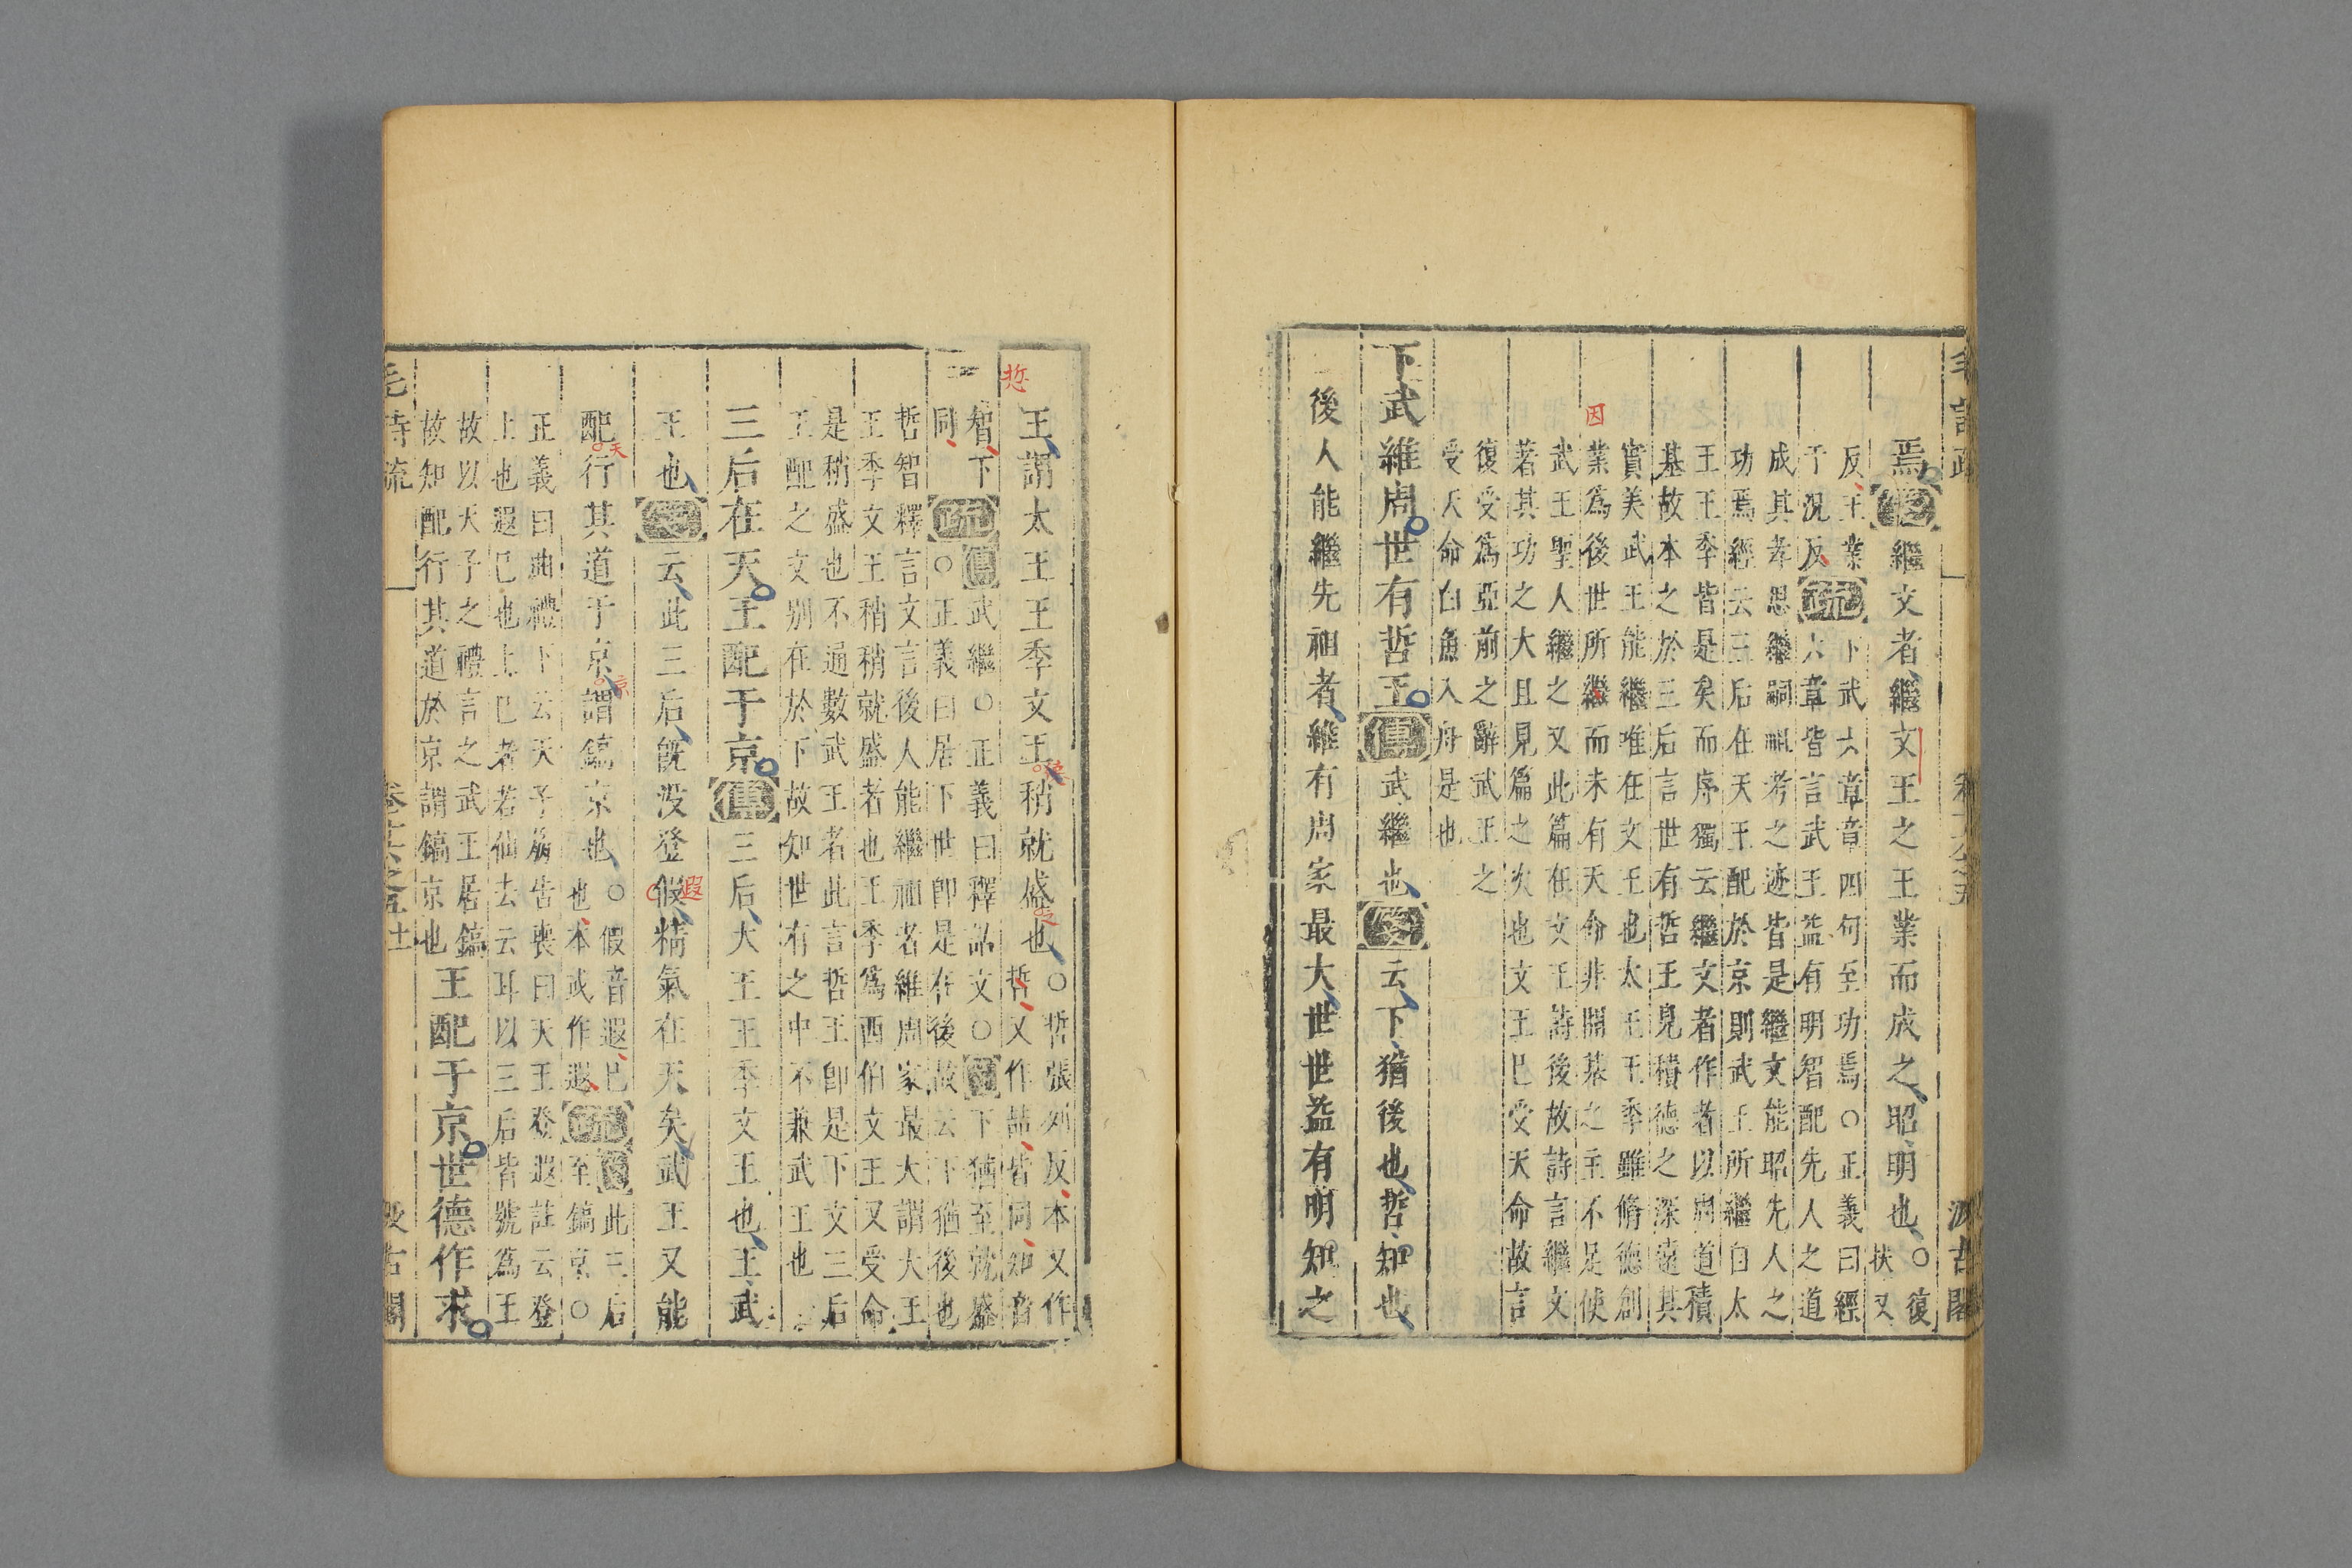 毛詩疏
卷十六之五
汲古閣
焉箋繼文者繼文王之王業而成之昭明也○復
扶又
反王業
于況反疏下武六章章四句至功焉○正義曰經
六章皆言武王益有明智配先人之道
成其孝思繼嗣祖考之迹皆是繼文能昭先人之
功焉經云三后在天王配於京則武王所繼自太
王王季皆是矣而序獨云繼文者作者以周道積
基故本之於三后言世有哲王見積德之深遠其
實美武王能繼唯在文王也太王王季雖脩德創
業為後世所繼而未有天命非開基之主不足使
因
武王聖人繼之又此篇在文王詩後故詩言繼文
著其功之大且見篇之次也文王巳受天命故言
復受為亞前之辭武王之
受天命白魚入舟是也
下武維周世有哲王傳武繼也箋云下猶後也哲知也
後人能繼先祖者維有周家最大世世益有明知之
王謂太王王季文王稍就盛也○哲張列反本又作
哲又作喆皆同知音
悊
智下
同疏傳武繼○正義曰釋詁文○箋下猶至就盛
○正義曰居下世即是在後故云下猶後也
哲智釋言文言後人能繼祖者維周家最大謂大王
王季文王稍稍就盛者也王季為西伯文王又受命
是稍盛也不通數武王者此言哲王即是下文三后
王配之文別在於下故知世有之中不兼武王也
三后在天王配于京傳三后大王王季文王也王武
王也箋云此三后旣没登假精氣在天矣武王又能
遐
配行其道于京謂鎬京也○假音遐巳
也本或作遐疏箋此三后
至鎬京○
天
京
正義曰曲禮下云天子崩告喪曰天王登遐註云登
上也遐巳也上巳者若仙去云耳以三后皆號為王
故以天子之禮言之武王居鎬
故知配行其道於京謂鎬京也王配于京世德作求
毛詩疏
卷十六之五
十一
汲古閣